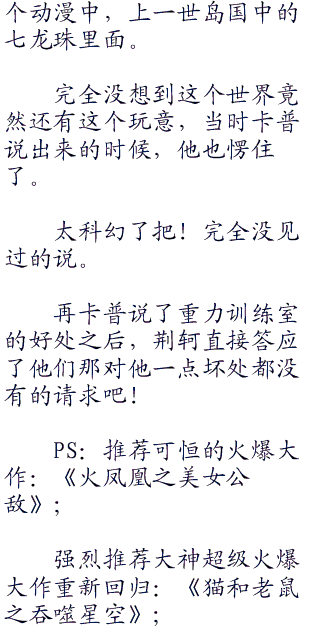 个动漫中，上一世岛国中的
七龙珠里面。
完全没想到这个世界竟
然还有这个玩意，当时卡普
说出来的时候，他也愣住
了。
太科幻了把！完全没见
过的说。
再卡普说了重力训练室
的好处之后，荆轲直接答应
了他们那对他一点坏处都没
有的请求吧！
PS：推荐可恒的火爆大
作：《火凤凰之美女公
敌》；
强烈推荐大神超级火爆
大作重新回归：《猫和老鼠
之吞噬星空》；